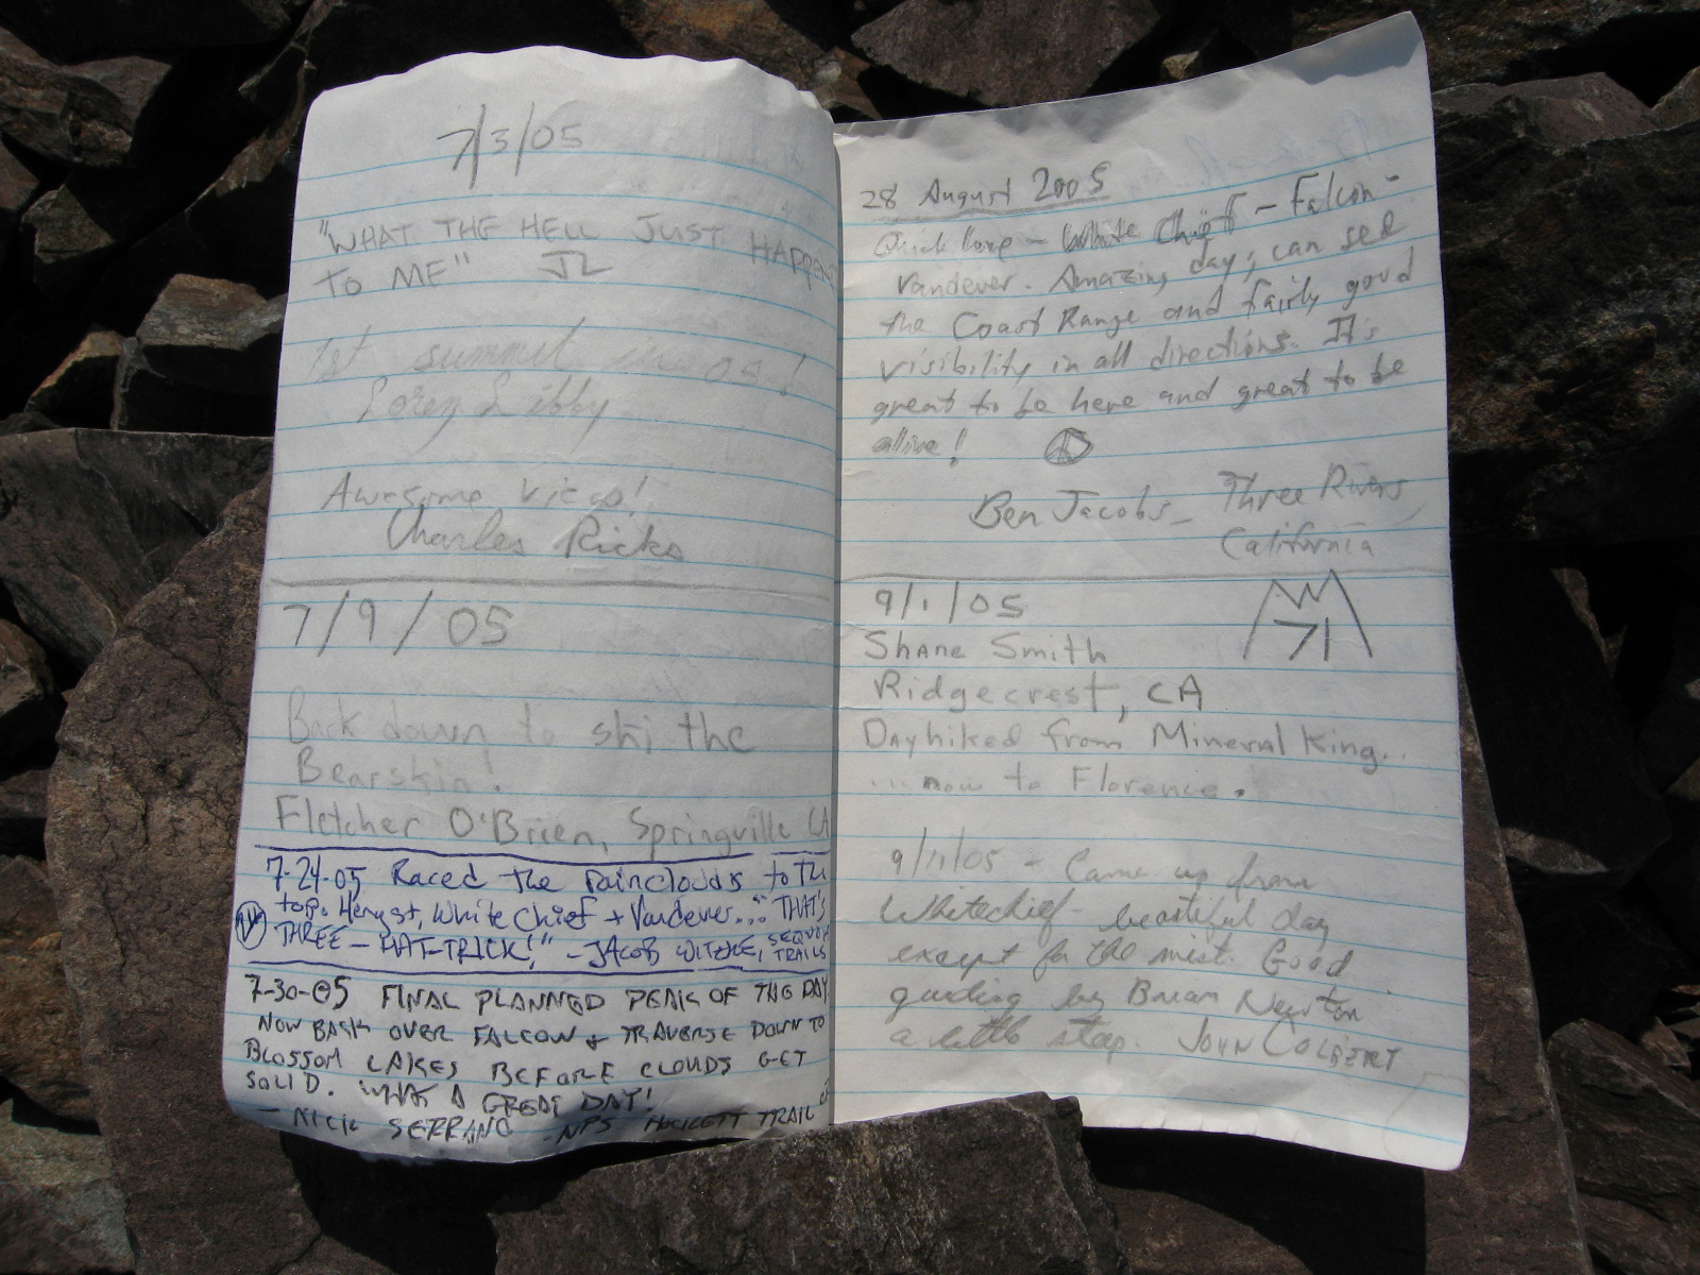 7/3/05
"WHAT THE HELL JUST HAPPEN
TO ME" JL
1st summit in 05!
Corey Libby
Awesome views!
Charles Ricks
7/9/05
Back down to ski the
Bearskin!
Fletcher O'Brien, Springville CA
7-24-05 Raced the rainclouds to the
top. Hengst, White Chief + Vandever... "THAT'S
THREE - HAT-TRICK!" - JACOB WITZKE, SEQUOIA
TRAILS
7-30-05 FINAL PLANNED PEAK OF THE DAY
NOW BACK OVER FALCON & TRAVERSE DOWN TO
BLOSSOM LAKES BEFORE CLOUDS GET
SOLID. WHAT A GREAT DAY!
- NICK SERRANO - NPS HOCKETT TRAIL
28 August 2005
Quick loop - White Chief - Falcon -
Vandever. Amazing day; can see
the Coast Range and fairly good
visibility in all directions. It's
great to be here and great to be
alive!
Ben Jacobs - Three Rivers,
California
9/1/05
71
Shane Smith
Ridgecrest, CA
Dayhiked from Mineral King...
... now to Florence.
9/11/05 - Came up from
Whitechief - beautiful day
except for the mist. Good
guiding by Brian Newton
a little steep. JOHN COLBERT